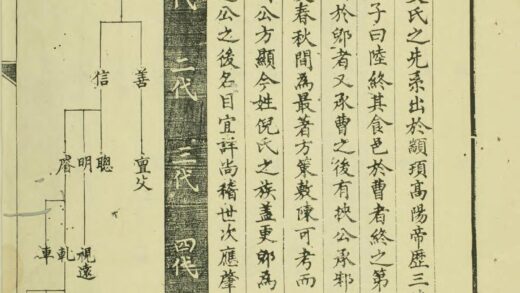 氏之先系出於顓頊高陽帝歷三
子曰陸終其食邑於曹者終之第
於郳者又承曹之後有挾公承邾
春秋間為最著方策敷陳可考而
公方顯今姓倪氏之族蓋更郳為
公之後名目宜詳尚稽世次應肇
代 二代 三代 四代
善
信
亶父
聰
明
視遠
車